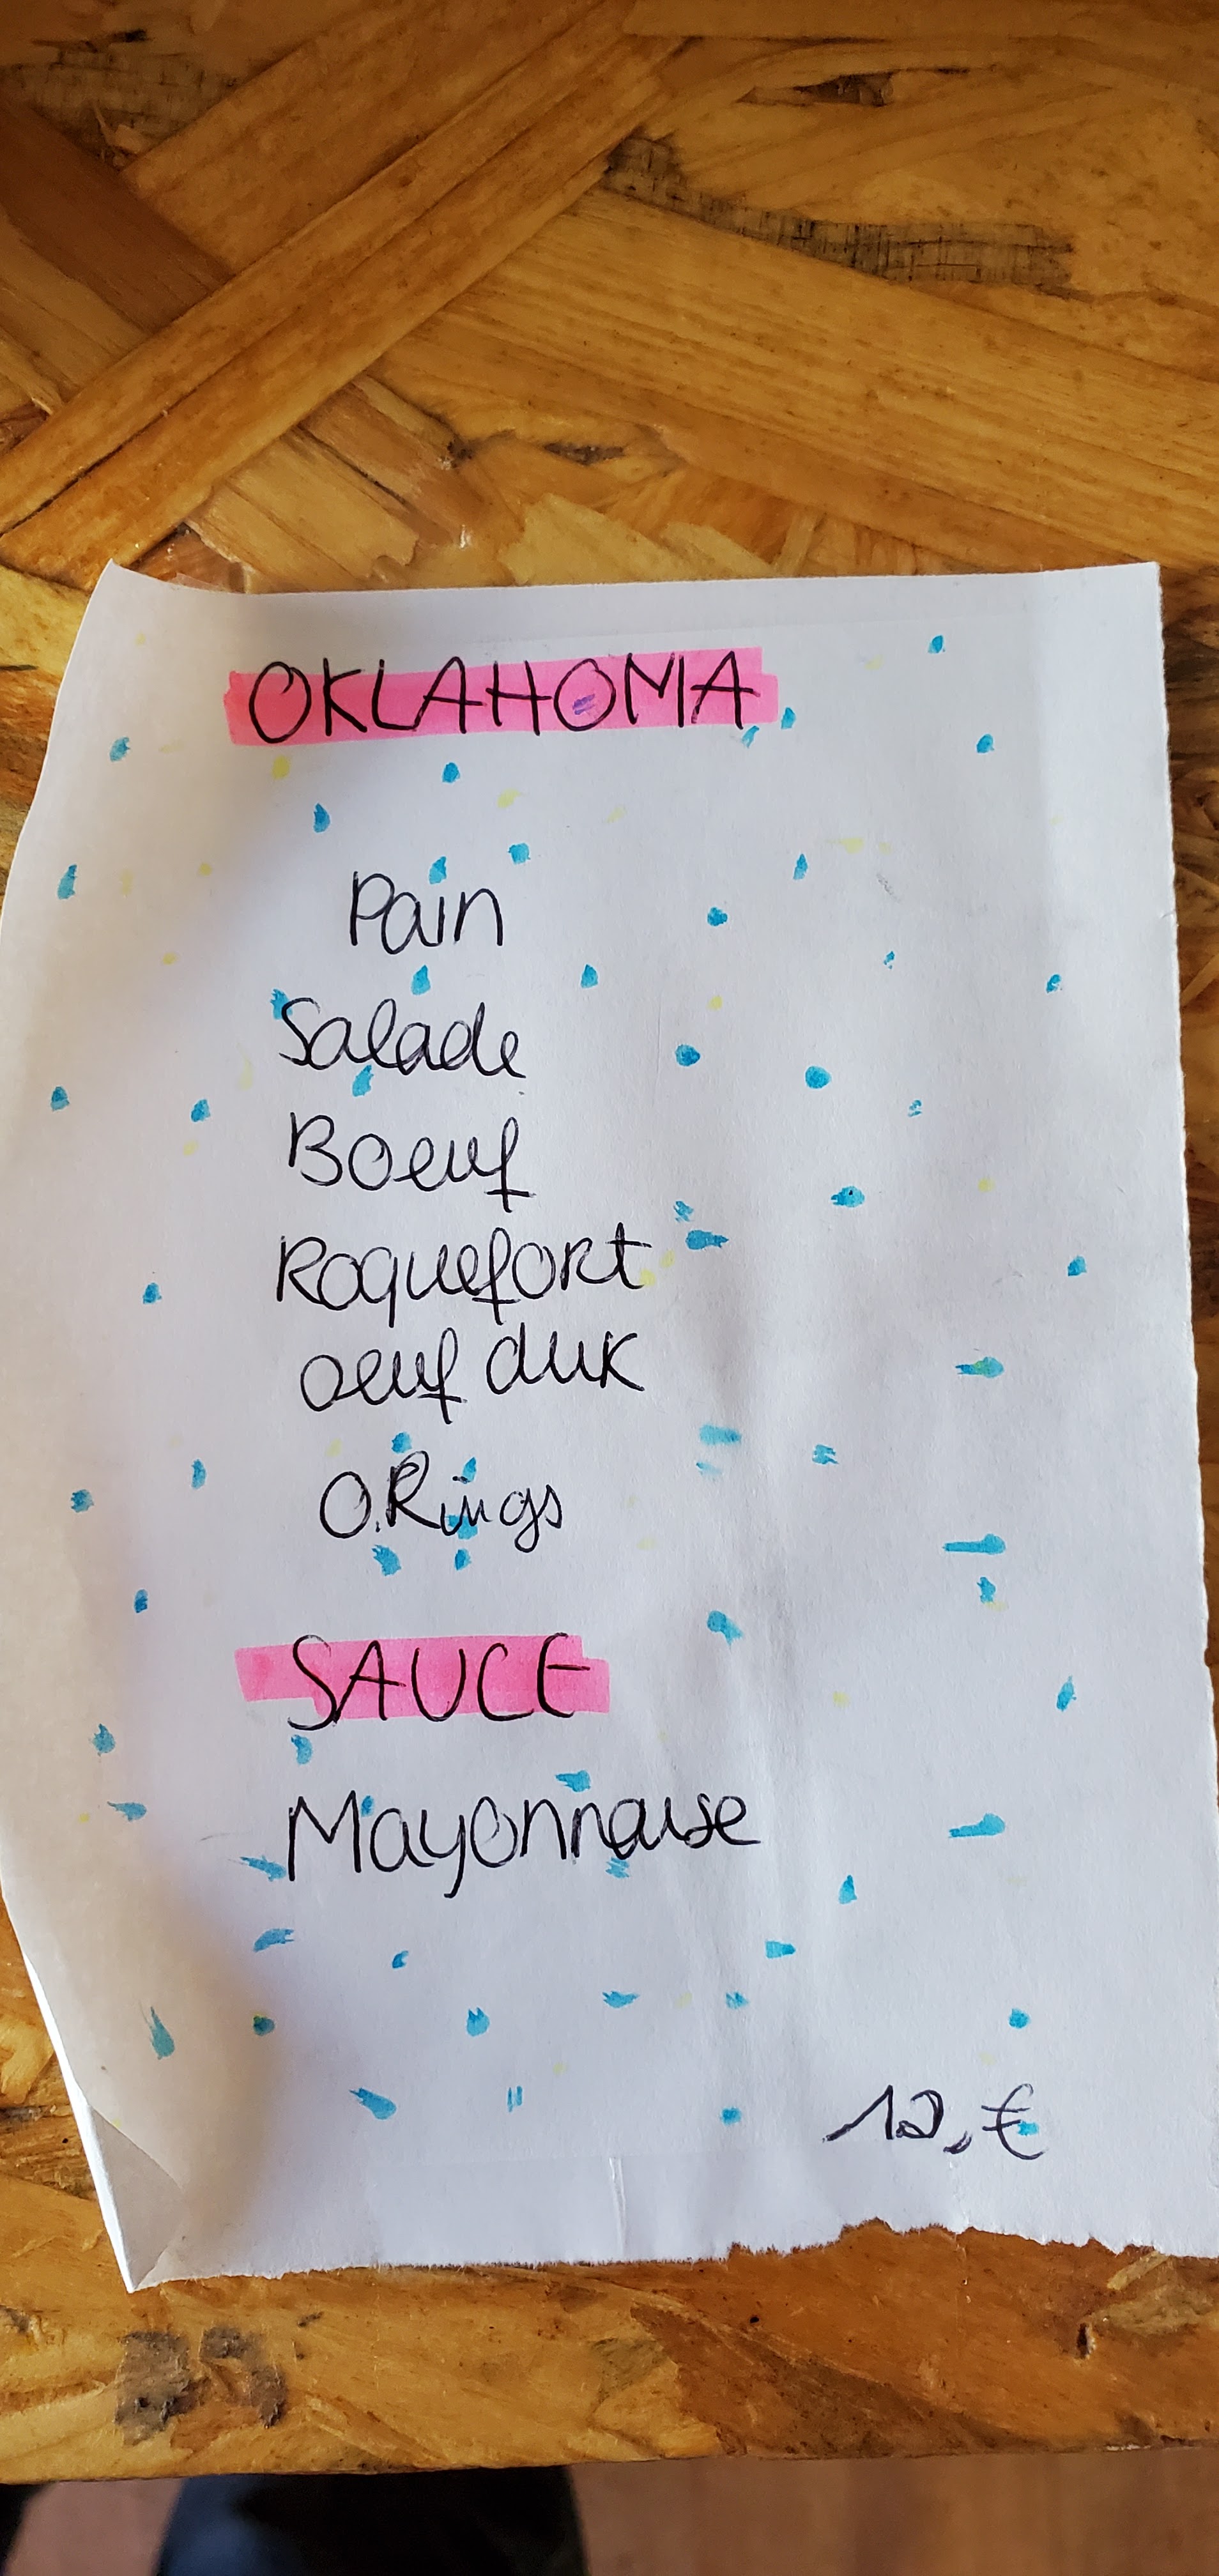 OKLAHOMA
Pain
Salade
Boeuf
Roquefort
oeuf duk
O.Rings
SAUCE
Mayonnaise
12,€